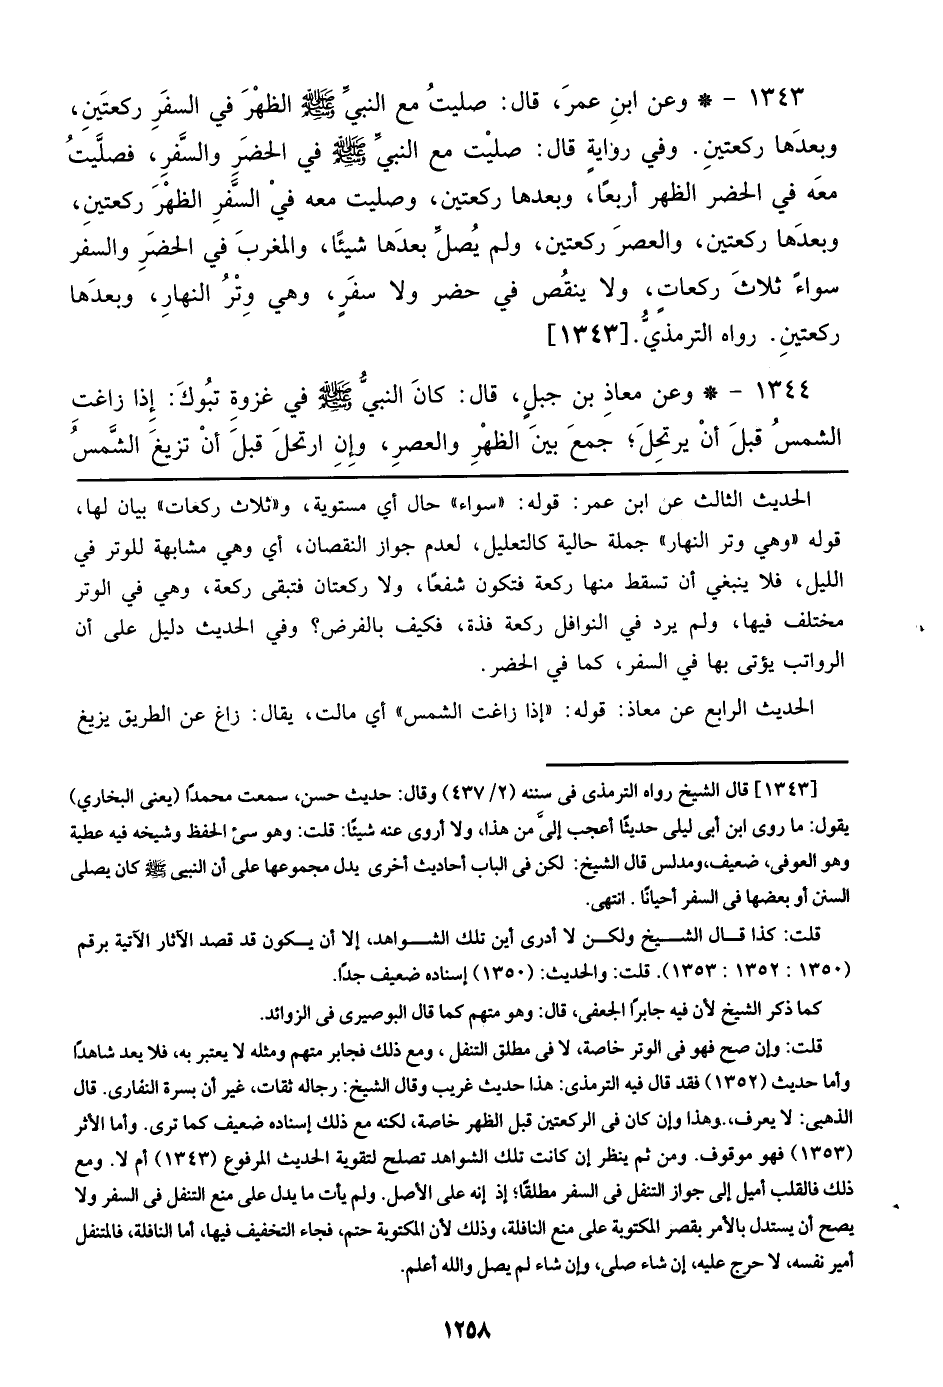 ١٣٤٣ - * وعن ابنِ عمرَ، قال: صليتُ مع النبيِّ ﷺ الظهْرَ في السفَرِ ركعتَينِ،
وبعدَها ركعتينِ. وفي روايةٍ قال: صليْت مع النبيِّ ﷺ في الحضَرِ والسَّفرِ، فصلَّيتُ
معَه في الحضر الظهر أربعًا، وبعدها ركعتين، وصليت معه فيْ السَّفرِ الظهْرَ ركعتينِ،
وبعدَها ركعتين، والعصرَ ركعتين، ولم يُصلِّ بعدَها شيئًا، والمغربَ في الحضَرِ والسفر
سواءً ثلاثَ ركعاتٍ، ولا ينقُص في حضر ولا سفَرٍ، وهي وِتْرُ النهارِ، وبعدَها
ركعتينِ. رواه الترمذيُّ.[١٣٤٣]
١٣٤٤ - * وعن معاذِ بن جبلٍ، قال: كانَ النبيُّ ﷺ في غزوةِ تبُوكَ: إِذا زاغتِ
الشمسُ قبلَ أنْ يرتحِلَ؛ جمعَ بينَ الظهْرِ والعصرِ، وإِنِ ارتحلَ قبلَ أنْ تزيغَ الشَّمسُ
الحديث الثالث عن ابن عمر: قوله: «سواء» حال أي مستوية، و«ثلاث ركعات» بيان لها،
قوله «وهي وتر النهار» جملة حالية كالتعليل، لعدم جواز النقصان، أي وهي مشابهة للوتر في
الليل، فلا ينبغي أن تسقط منها ركعة فتكون شفعًا، ولا ركعتان فتبقى ركعة، وهي في الوتر
مختلف فيها، ولم يرد في النوافل ركعة فذة، فكيف بالفرض؟ وفي الحديث دليل على أن
الرواتب يؤتى بها في السفر، كما في الحضر.
الحديث الرابع عن معاذ: قوله: «إذا زاغت الشمس» أي مالت، يقال: زاغ عن الطريق يزيغ
[١٣٤٣] قال الشيخ رواه الترمذى فى سننه (٢/ ٤٣٧) وقال: حديث حسن، سمعت محمدًا (يعنى البخاري)
يقول: ما روى ابن أبى ليلى حديثًا أعجب إلىَّ من هذا، ولا أروى عنه شيئًا: قلت: وهو سئ الحفظ وشيخه فيه عطية
وهو العوفى، ضعيف،ومدلس قال الشيخ: لكن فى الباب أحاديث أخرى يدل مجموعها على أن النبى ﷺ كان يصلى
السنن أو بعضها فى السفر أحيانًا . انتهى.
قلت: كذا قـال الشـيخ ولكـن لا أدرى أين تلك الشـواهد، إلا أن يـكون قد قصد الآثار الآتية برقم
(١٣٥٠ : ١٣٥٢ : ١٣٥٣). قلت: والحديث: (١٣٥٠) إسناده ضعيف جدًا.
كما ذكر الشيخ لأن فيه جابرًا الجعفى، قال: وهو متهم كما قال البوصيرى فى الزوائد.
قلت: وإن صح فهو فى الوتر خاصة، لا فى مطلق التنفل ، ومع ذلك فجابر متهم ومثله لا يعتبر به، فلا يعد شاهدًا
وأما حديث (١٣٥٢) فقد قال فيه الترمذى: هذا حديث غريب وقال الشيخ: رجاله ثقات، غير أن بسرة النفارى. قال
الذهبى: لا يعرف،.وهذا وإن كان فى الركعتين قبل الظهر خاصة، لكنه مع ذلك إسناده ضعيف كما ترى. وأما الأثر
(١٣٥٣) فهو موقوف. ومن ثم ينظر إن كانت تلك الشواهد تصلح لتقوية الحديث المرفوع (١٣٤٣) أم لا. ومع
ذلك فالقلب أميل إلى جواز التنفل فى السفر مطلقًا؛ إذ إنه على الأصل. ولم يأت ما يدل على منع التنفل فى السفر ولا
يصح أن يستدل بالأمر بقصر المكتوبة على منع النافلة، وذلك لأن المكتوبة حتم، فجاء التخفيف فيها، أما النافلة، فالمتنفل
أمير نفسه، لا حرج عليه، إن شاء صلى، وإن شاء لم يصل والله أعلم.
١٢٥٨